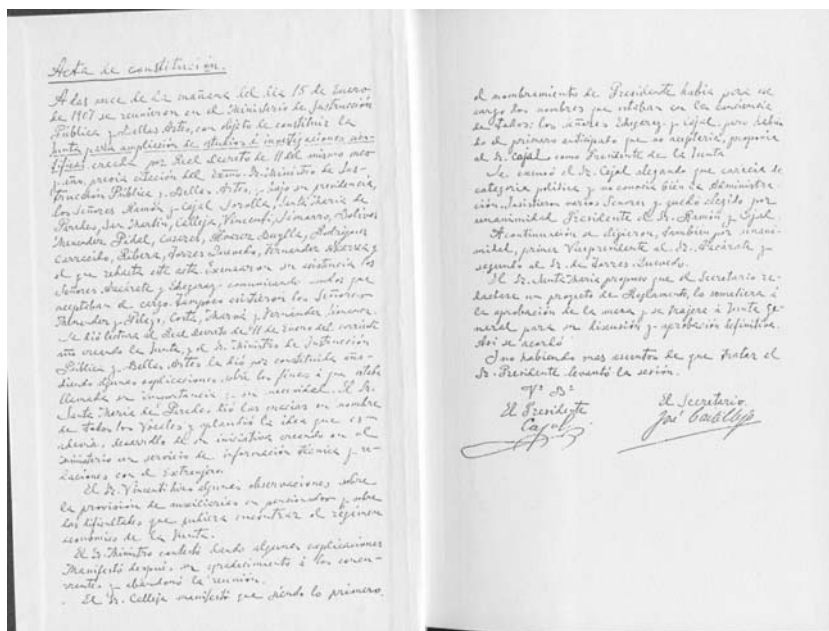 Acta de constitución.
A las once de la mañana del día 15 de Enero
de 1907 se reunieron en el Ministerio de Instrucción
Pública y Bellas Artes, con objeto de constituir la
Junta para ampliación de estudios é investigaciones cien-
tíficas creada por Real decreto de 11 del mismo mes
y año, previa citación del Excmo. Sr. Ministro de Ins-
trucción Pública y Bellas Artes, y bajo su presidencia,
los Señores Ramón y Cajal, Sorolla, Santa María de
Paredes, San Martín, Calleja, Vincenti, Simarro, Bolívar
Menéndez Pidal, Casares, Alvarez Buylla, Rodríguez
Carracido, Ribera, Torres Quevedo, Fernández Ascarza y
el que redacta este acta. Excusaron su asistencia los
Señores Azcárate y Echegaray comunicando ambos que
aceptaban el cargo. Tampoco asistieron los Señores
Menéndez y Pelayo, Costa, Marvá y Fernández Jiménez.
Se dió lectura al Real decreto de 11 de Enero del corriente
año creando la Junta, y el Sr. Ministro de Instrucción
Pública y Bellas Artes la dió por constituida aña-
diendo algunas explicaciones sobre los fines á que estaba
llamada su importancia y su necesidad. El Sr.
Santa María de Paredes dió las gracias en nombre
de todos los Vocales y aplaudió la idea que es-
desarrollo de su iniciativa creando en el
Ministerio un servicio de información técnica y re-
laciones con el Extranjero.
El Sr. Vincenti hizo algunas observaciones sobre
la provisión de auxiliarías en pensionados y sobre
las dificultades que pudiera encontrar el régimen
económico de la Junta.
El Sr. Ministro contestó dando algunas explicaciones
Manifestó después su agradecimiento á los concu-
rrentes y abandonó la reunión.
El Sr. Calleja manifestó que siendo lo primero
el nombramiento de Presidente había para ese
cargo dos nombres que estaban en la conciencia
de todos: los señores Echegaray y Cajal, pero habien-
do el primero anticipado que no aceptaría, proponía
al Sr. Cajal como Presidente de la Junta
Se excusó el Sr. Cajal alegando que carecía de
categoría política y no conocía bien la Administra-
ción. Insistieron varios Señores y quedó elegido por
unanimidad Presidente el Sr. Ramón y Cajal.
A continuación se eligieron, también por unani-
midad, primer Vicepresidente al Sr. Azcárate y
segundo al Sr. de Torres Quevedo.
El Sr. Santa María propuso que el Secretario re-
dactase un proyecto de Reglamento, lo sometiera á
la aprobación de la mesa y se trajera á Junta ge-
neral para su discusión y aprobación definitiva.
Así se acordó
Y no habiendo mas asuntos de que tratar el
Sr. Presidente levantó la sesión.
Vº Bº
El Presidente
Cajal
El Secretario
José Castillejo